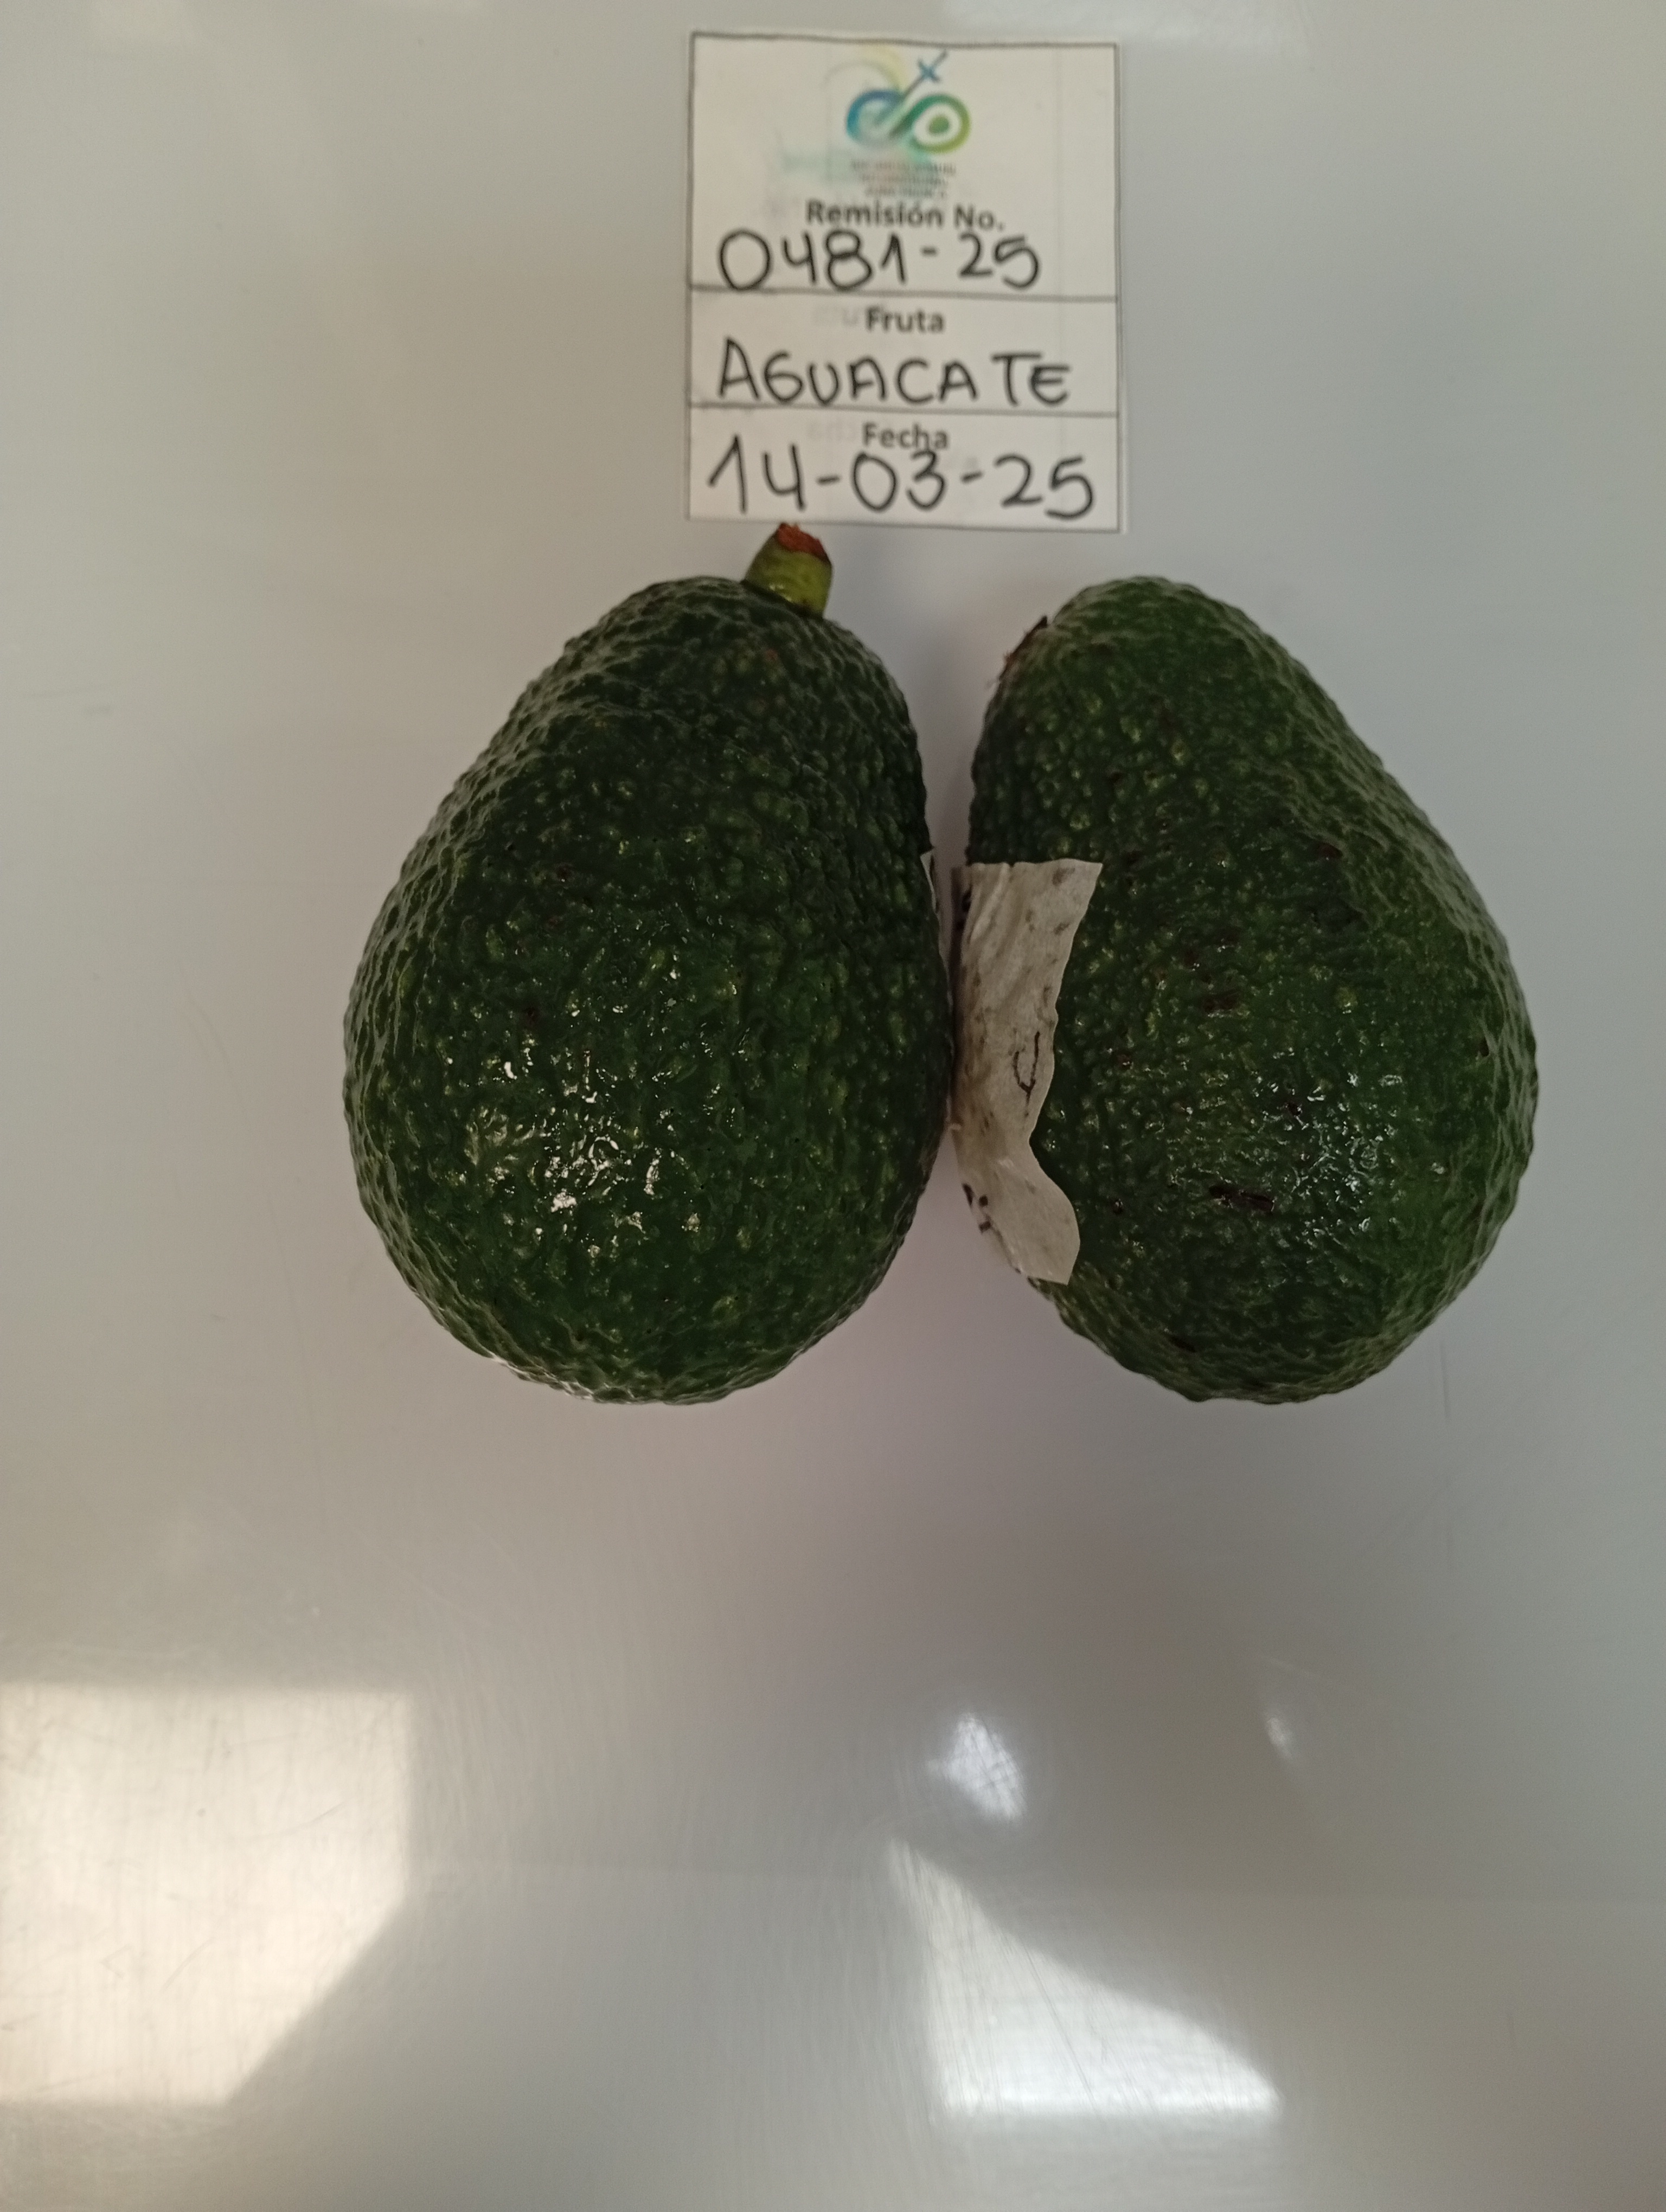 Remisión No.
0481-25
Fruta
AGUACATE
Fecha
14-03-25